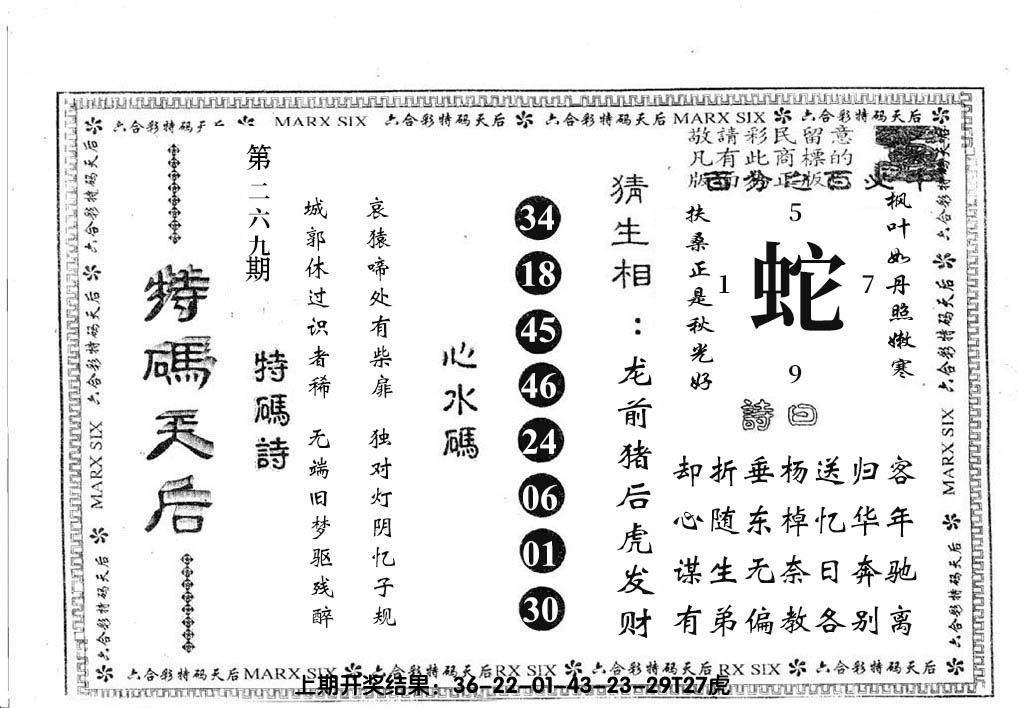 六合彩特码天后 MARX SIX 六合彩特码天后 六合彩特码天后 MARX SIX 六合彩特码天后
敬請彩民留意
凡有此商標的
版面为正版
猜生相：龙前猪后虎发财
枫叶如丹照嫩寒
扶桑正是秋光好
5
1
蛇
7
9
詩曰
客年驰离
归华奔别
送忆日各
杨棹奈教
垂东无偏
折随生弟
却心谋有
心水碼
34
18
45
46
24
06
01
30
哀猿啼处有柴扉 独对灯阴忆子规
城郭休过识者稀 无端旧梦驱残醉
特碼詩
第二六九期
特碼天后
六合彩特码天后 六合彩特码天后 MARX SIX 六合彩特码天后
六合彩特码天后 六合彩特码天后 MARX SIX 六合彩特码天后
六合彩特码天后MARX SIX 六合彩特码天后RX SIX 六合彩特码天后RX SIX 六合彩特码天后
上期开奖结果：36-22-01-43-23-29T27虎